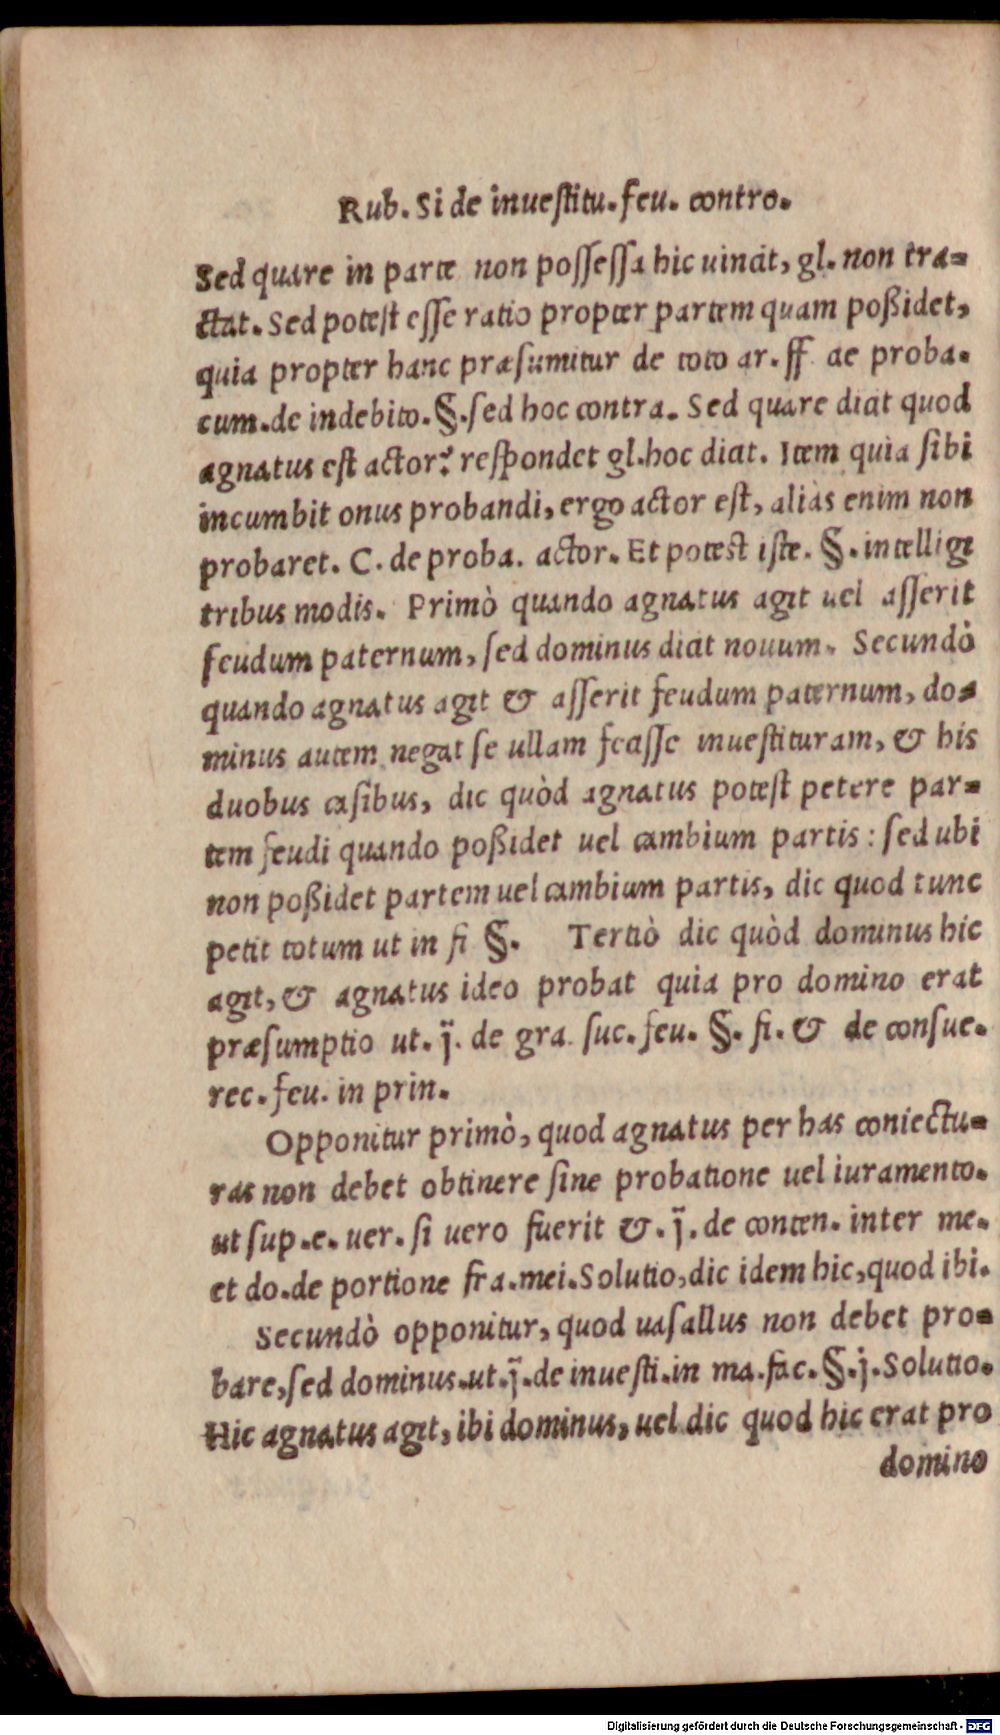 Rub. Si de inuestitu. feu. contro.
Sed quare in parte non possessa hic uincit, gl. non tra-
ctat. Sed potest esse ratio propter partem quam poßidet,
quia propter hanc præsumitur de toto ar. ff de proba-
cum. de indebito. §. sed hoc contra. Sed quare dicit quod
agnatus est actor? respondet gl. hoc dicit. Item quia sibi
incumbit onus probandi, ergo actor est, aliàs enim non
probaret. C. de proba. actor. Et potest iste. §. intelligi
tribus modis. Primò quando agnatus agit uel asserit
feudum paternum, sed dominus dicit nouum. Secundò
quando agnatus agit & asserit feudum paternum, do-
minus autem negat se ullam fecisse inuestituram, & his
duobus casibus, dic quòd agnatus potest petere par-
tem feudi quando poßidet uel cambium partis: sed ubi
non poßidet partem uel cambium partis, dic quod tunc
petit totum ut in fi §. Tertiò dic quòd dominus hic
agit, & agnatus ideo probat quia pro domino erat
præsumptio ut. j̃. de gra. suc. feu. §. fi. & de consue.
rec. feu. in prin.
Opponitur primò, quod agnatus per has coniectu-
ras non debet obtinere sine probatione uel iuramento.
ut sup. e. uer. si uero fuerit &. j̃. de conten. inter me.
et do. de portione fra. mei. Solutio, dic idem hic, quod ibi.
Secundò opponitur, quod uasallus non debet pro-
bare, sed dominus. ut. j̃. de inuesti. in ma. fac. §. j. Solutio.
Hic agnatus agit, ibi dominus, uel dic quod hic erat pro
domino
Digitalisierung gefördert durch die Deutsche Forschungsgemeinschaft - DFG